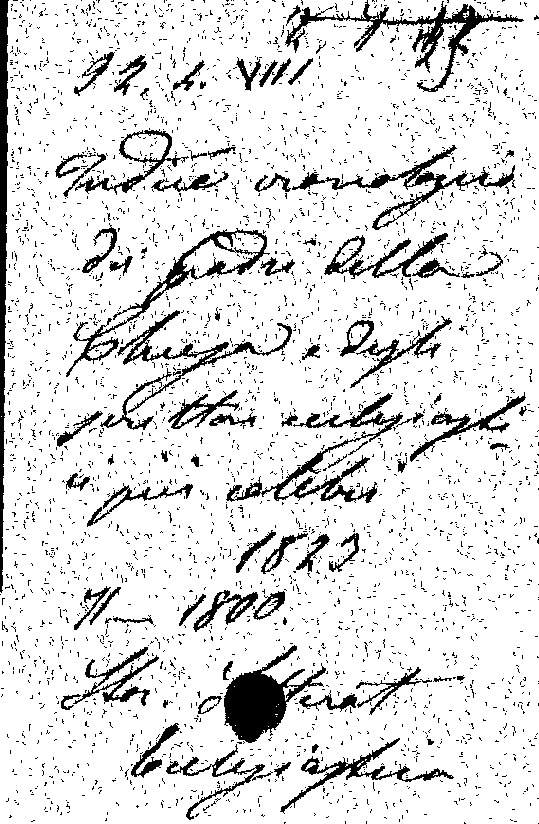 92. 4. VIII
Indice cronologico
dei padri della
Chiesa e degli
scrittori ecclesiastici
i più celebri
1823
1800.
Stor. Letterat
Ecclesiastica